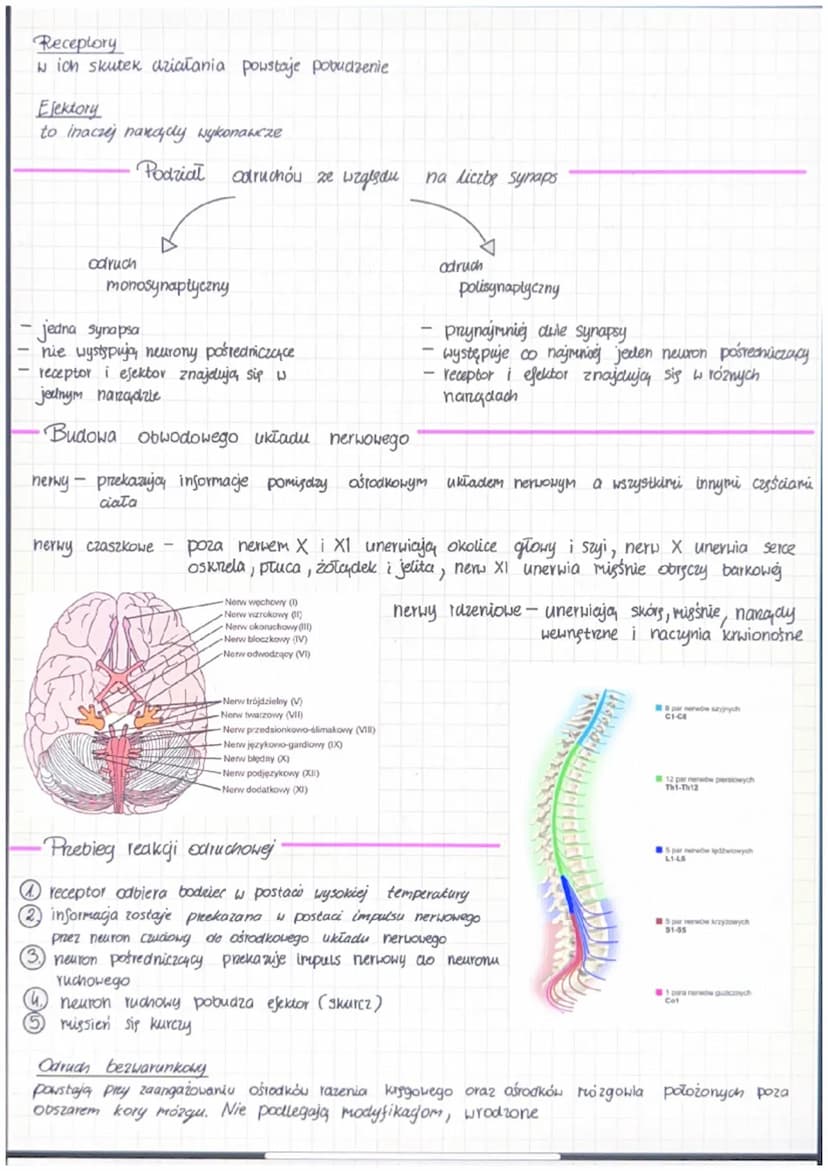 Receptory
w ich skutek działania powstaje pobudzenie
Efektory
to inaczej narządy wykonawcze
Podział odruchów ze względu na liczbę synaps
odruch
monosynaptyczny
- jedna synapsa
- nie występują neurony pośredniczące
- receptor i efektor znajdują się w
jednym narządzie
odruch
polisynaptyczny
- przynajmniej dwie synapsy
- występuje co najmniej jeden neuron pośredniczący
- receptor i efektor znajdują się w różnych
narządach
Budowa obwodowego układu nerwowego
nerwy - przekazują informacje pomiędzy ośrodkowym układem nerwowym a wszystkimi innymi częściami
ciała
nerwy czaszkowe - poza nerwem X i XI unerwiają okolice głowy i szyi, nerw X unerwia serce
oskrzela, płuca, żołądek i jelita, nerw XI unerwia mięśnie obręczy barkowej
Nerw węchowy (I)
Nerw wzrokowy (II)
Nerw okoruchowy (III)
Nerw bloczkowy (IV)
Nerw odwodzący (VI)
Nerw trójdzielny (V)
Nerw twarzowy (VII)
Nerw przedsionkowo-ślimakowy (VIII)
Nerw językowo-gardłowy (IX)
Nerw błędny (X)
Nerw podjęzykowy (XII)
Nerw dodatkowy (XI)
nerwy rdzeniowe - unerwiają skórę, mięśnie, narządy
wewnętrzne i naczynia krwionośne
8 par nerwów szyjnych
C1-C8
12 par nerwów piersiowych
Th1-Th12
5 par nerwów lędźwiowych
L1-L5
5 par nerwów krzyżowych
S1-S5
1 para nerwów guzicznych
Co1
Przebieg reakcji odruchowej
1 receptor odbiera bodziec w postaci wysokiej temperatury
2. informacja zostaje przekazana w postaci impulsu nerwowego
przez neuron czuciowy do ośrodkowego układu nerwowego
3. neuron pośredniczący przekazuje impuls nerwowy do neuronu
ruchowego
4. neuron ruchowy pobudza efektor (skurcz)
5 mięsień się kurczy
Odruch bezwarunkowy
powstają przy zaangażowaniu ośrodków rdzenia kręgowego oraz ośrodków mózgowia położonych poza
obszarem kory mózgu. Nie podlegają modyfikacjom, wrodzone